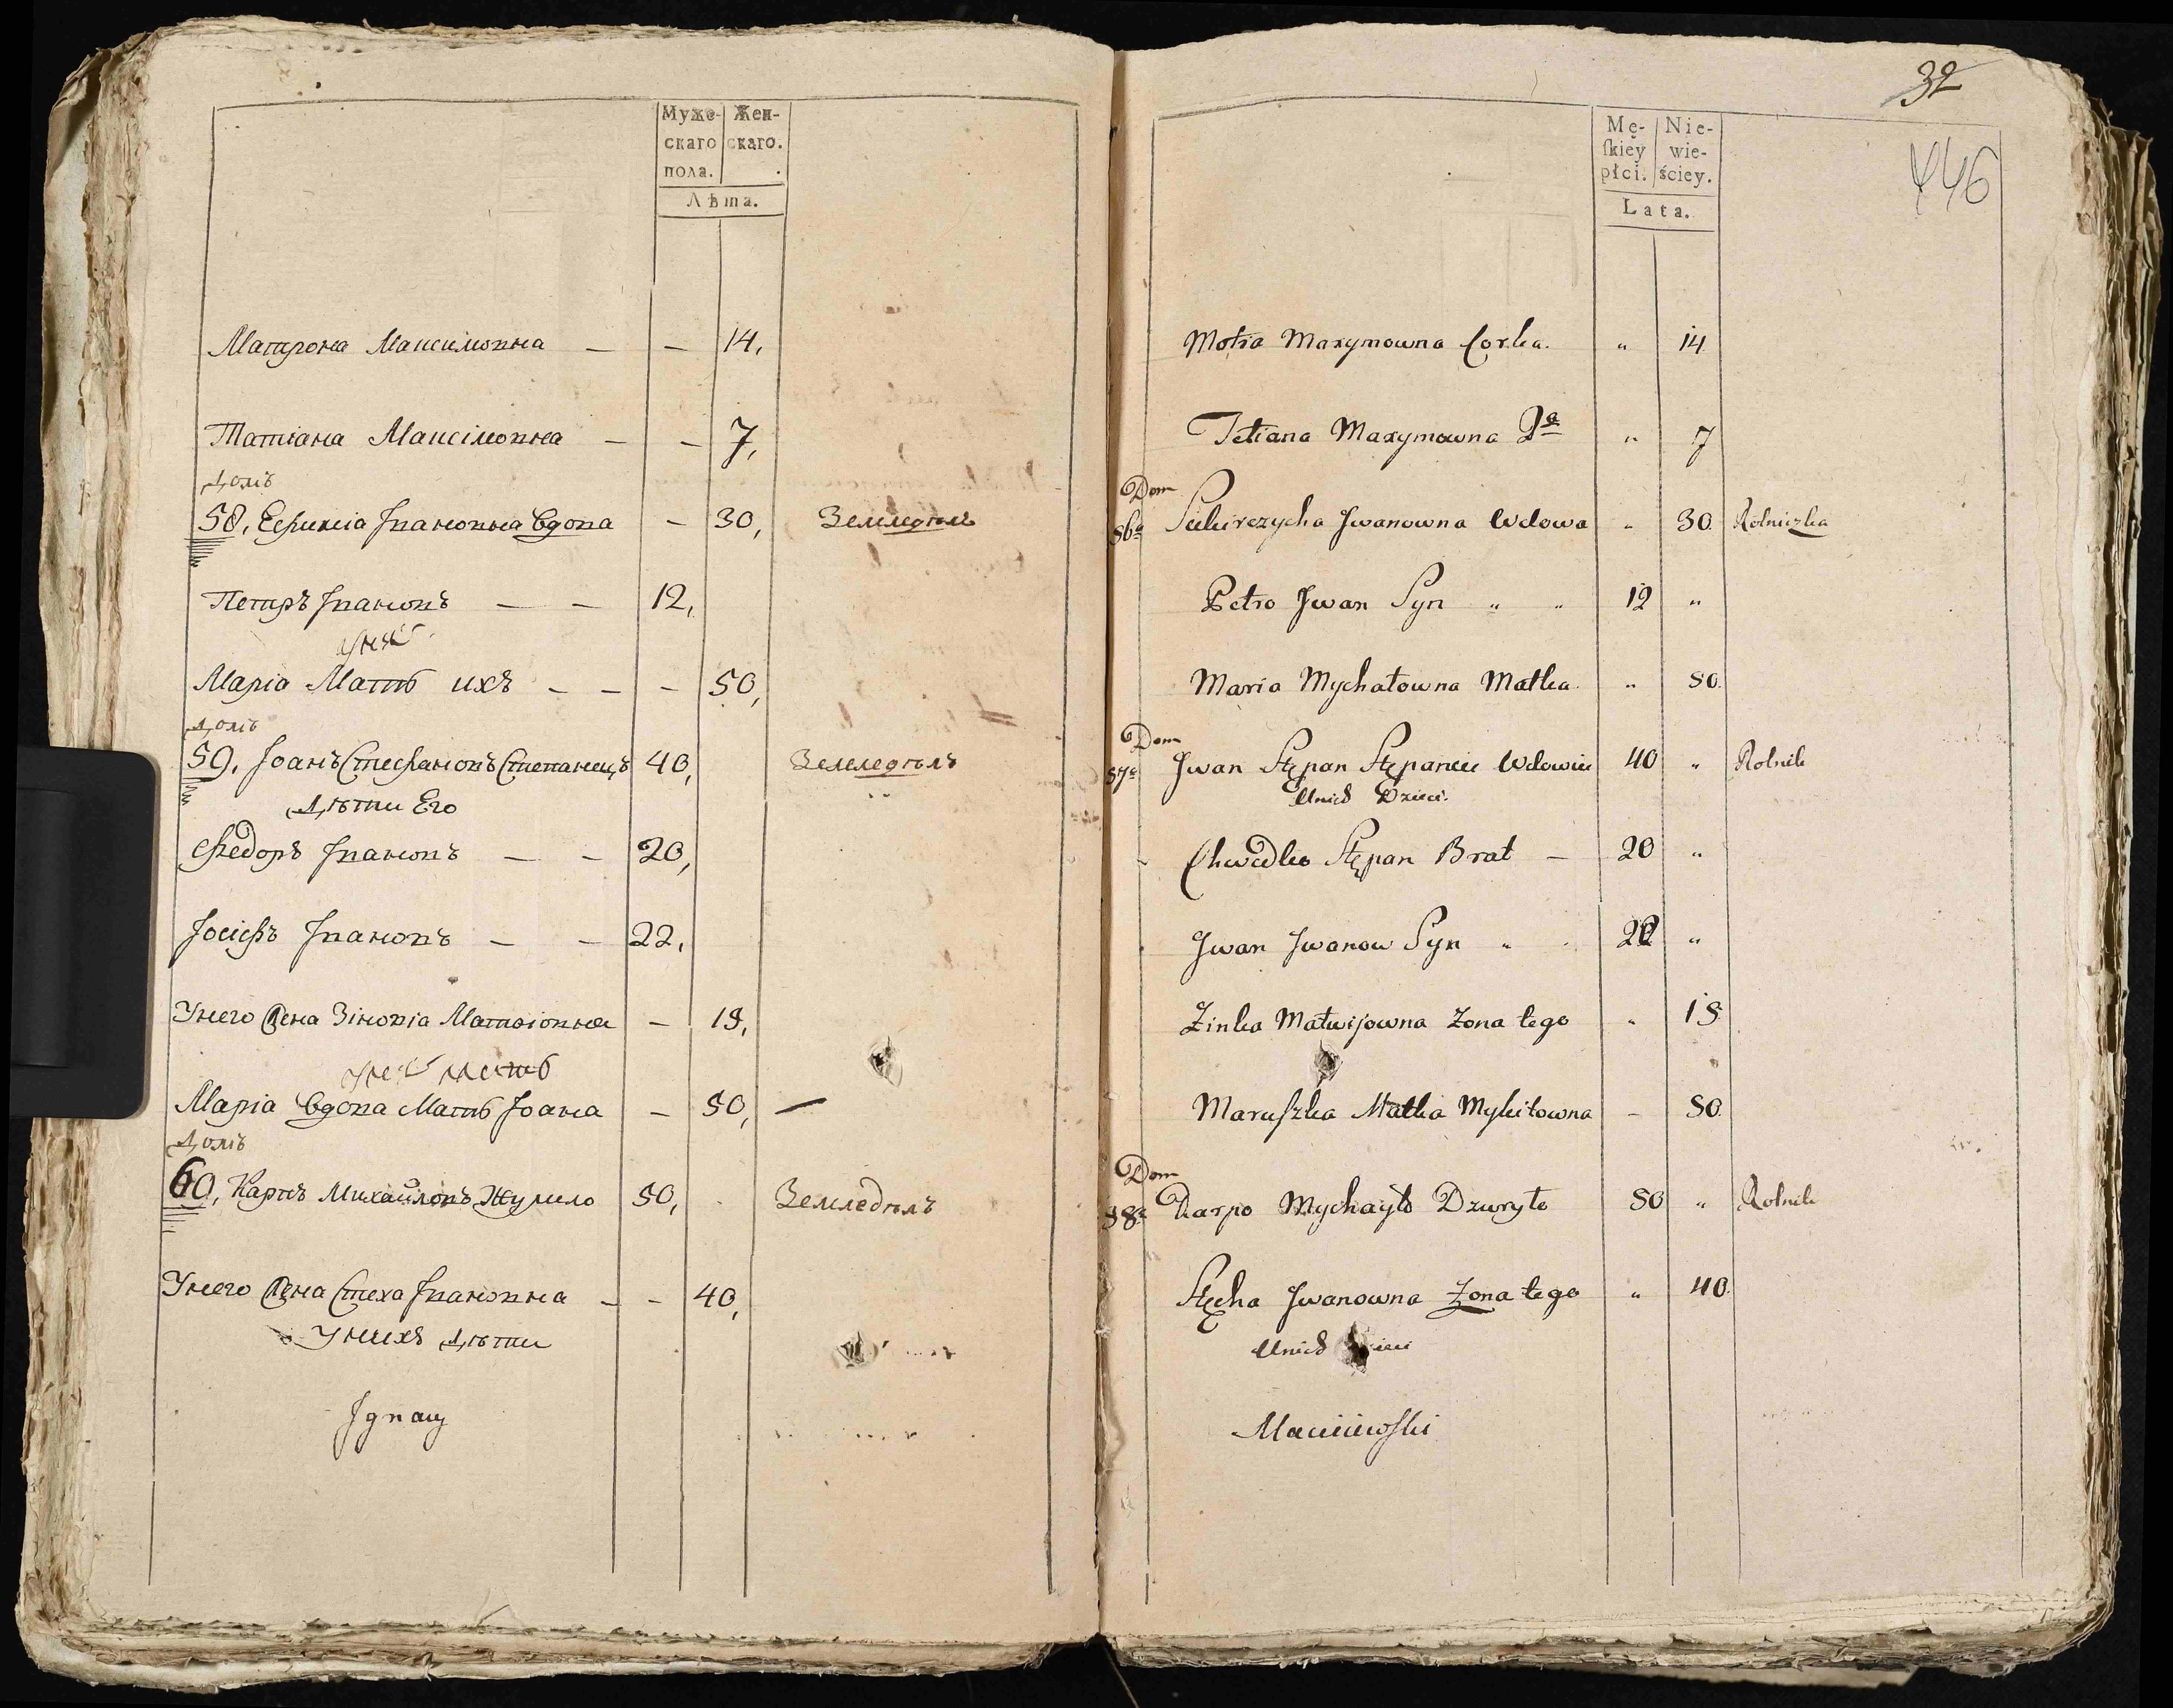 Муже-скаго пола. Жен-скаго.
Лѣта.
Матрона Максимовна — — 14,
Татіана Максімовна — — 7,
Домъ
58, Евфимія Івановна вдова — 30, Земледѣлъ
Петръ Івановъ — — 12,
Марія Мать ихъ — — — 50,
Домъ
59, Іоанъ Стефановъ Степанецъ 40, Земледѣлъ
Дѣти Его
Федоръ Івановъ — — 20,
Іосифъ Івановъ — — 22,
Унего Жена Зіновія Матвіовна — 18,
мать
Марія вдова Мать Іоана — 50, —
Домъ
60, Карпъ Михайловъ 50, Земледѣлъ
Унего Жена Стеха Івановна — — 40,
Унихъ дѣти
Jgnacy
32
446
Mę-skiey płci. Nie-wie-ściey.
Lata.
Motra Maxymowna Corka. " 14
Tetiana Maxymowna Da " 7
Dom
56a Jwanowna Wdowa " 30 Rolniczka
Petro Jwan Syn " " 12 "
Maria Mychałowna Matka " 50
Dom
57a Jwan Stępan Stępaniec Wdowiec 40 " Rolnik
Unich Dzieci.
Chwedko Stępan Brat — 20 "
Jwan Jwanow Syn " 22 "
Zinka Matwijowna Zona tego " 18
Maruszka Matka Mykitowna — 50
Dom
58a Karpo Mychayło Dzuryło 50 " Rolnik
Stęcha Jwanowna Zona tego " 40
Unich Dzieci
Macieiewski